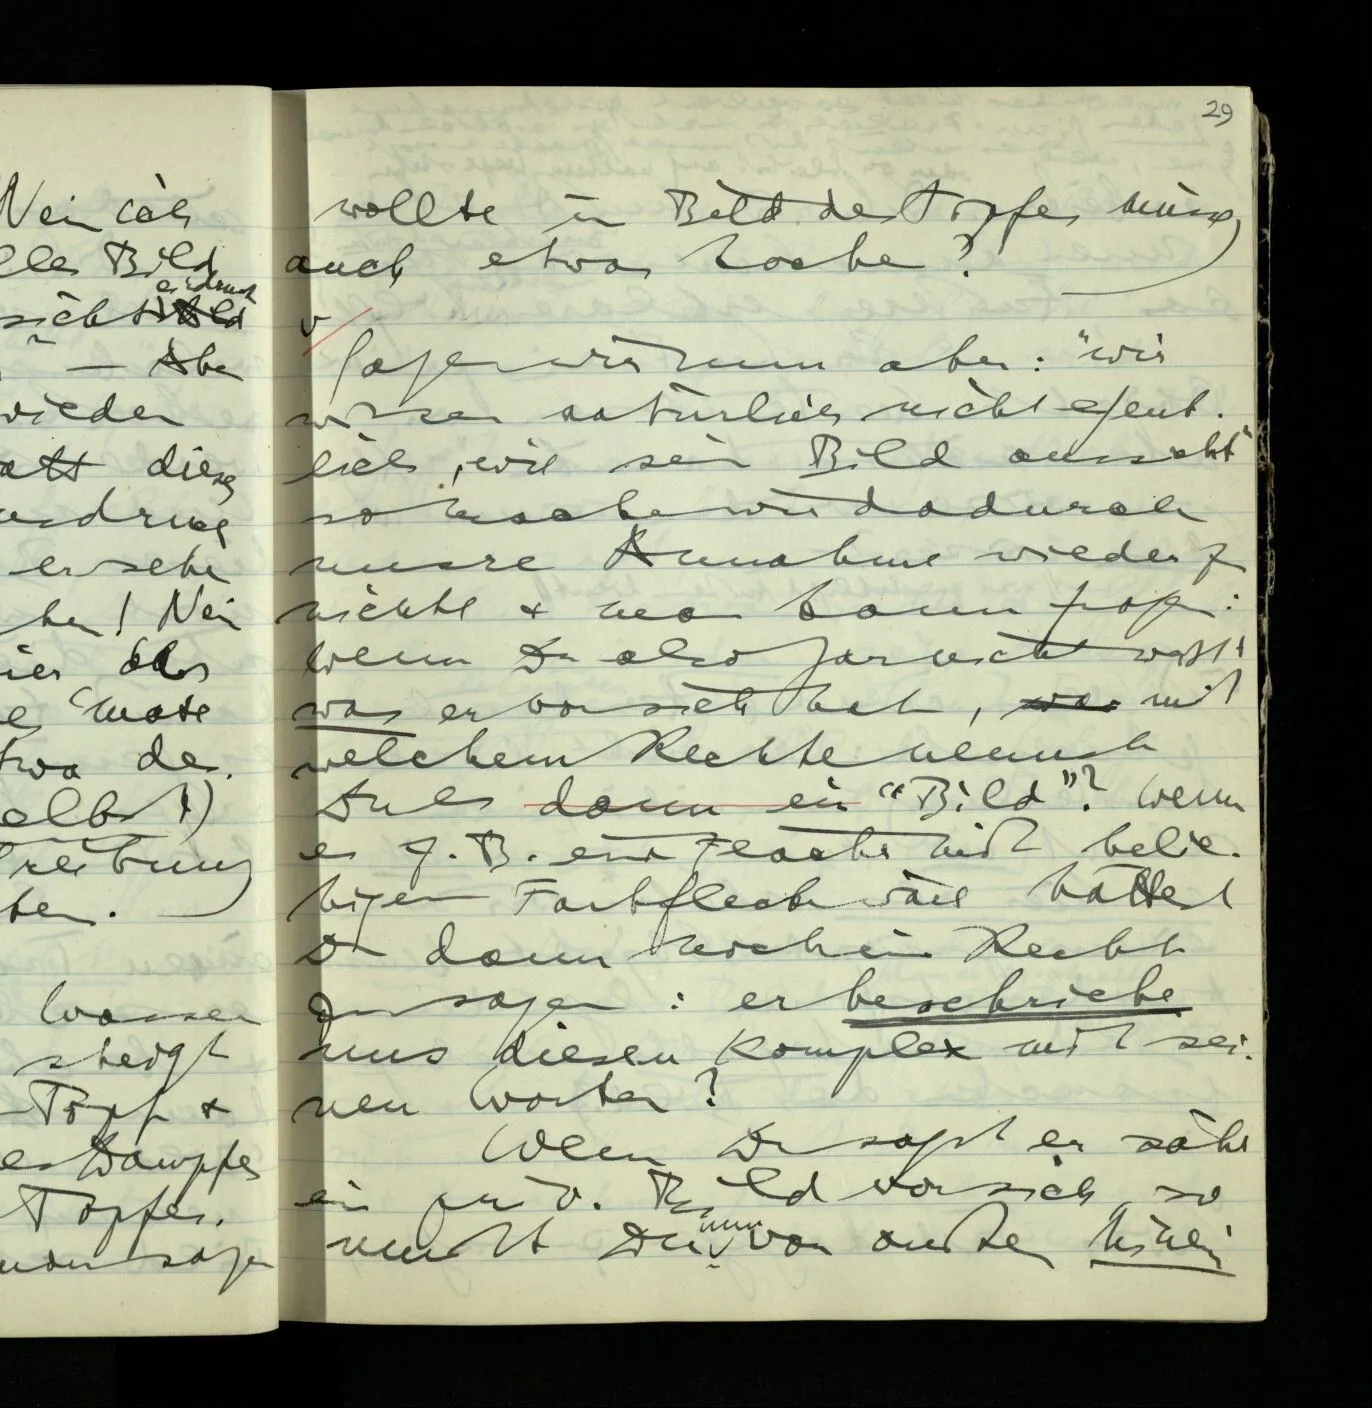 Nein ich
lles Bild
eindruck
sichtsbild
— Aber
wieder
att diese
usdruck
er sehe
he! Nein
ier das
e "mate
twa de
elbst)
reibung
ben.
Wasser
steigt
Topf &
es Dampfes
Topfes.
man sage
29
wollte im Bild des Topfes müsse
auch etwas koche?)
v
Sagen wir nun aber: "wir
wissen natürlich nicht eigent-
lich, wie sein Bild aussieht"
so machen wir dadurch
unsre Annahme wieder z
nichte & man kann fragen:
Wenn Du also gar nicht weißt
was er vor sich hat, was mit
welchem Rechte nennst
Du es dann ein "Bild"? Wenn
es z.B. eine Fläche mit belie-
bigen Farbflecken wäre hättest
Du dann noch ein Recht
zu sagen: er beschriebe
uns diesen Komplex mit sei-
nen Worten?
Wenn Du sagst er sähe
ein priv. Bild vor sich, so
nun
mußt Du von außen hinein